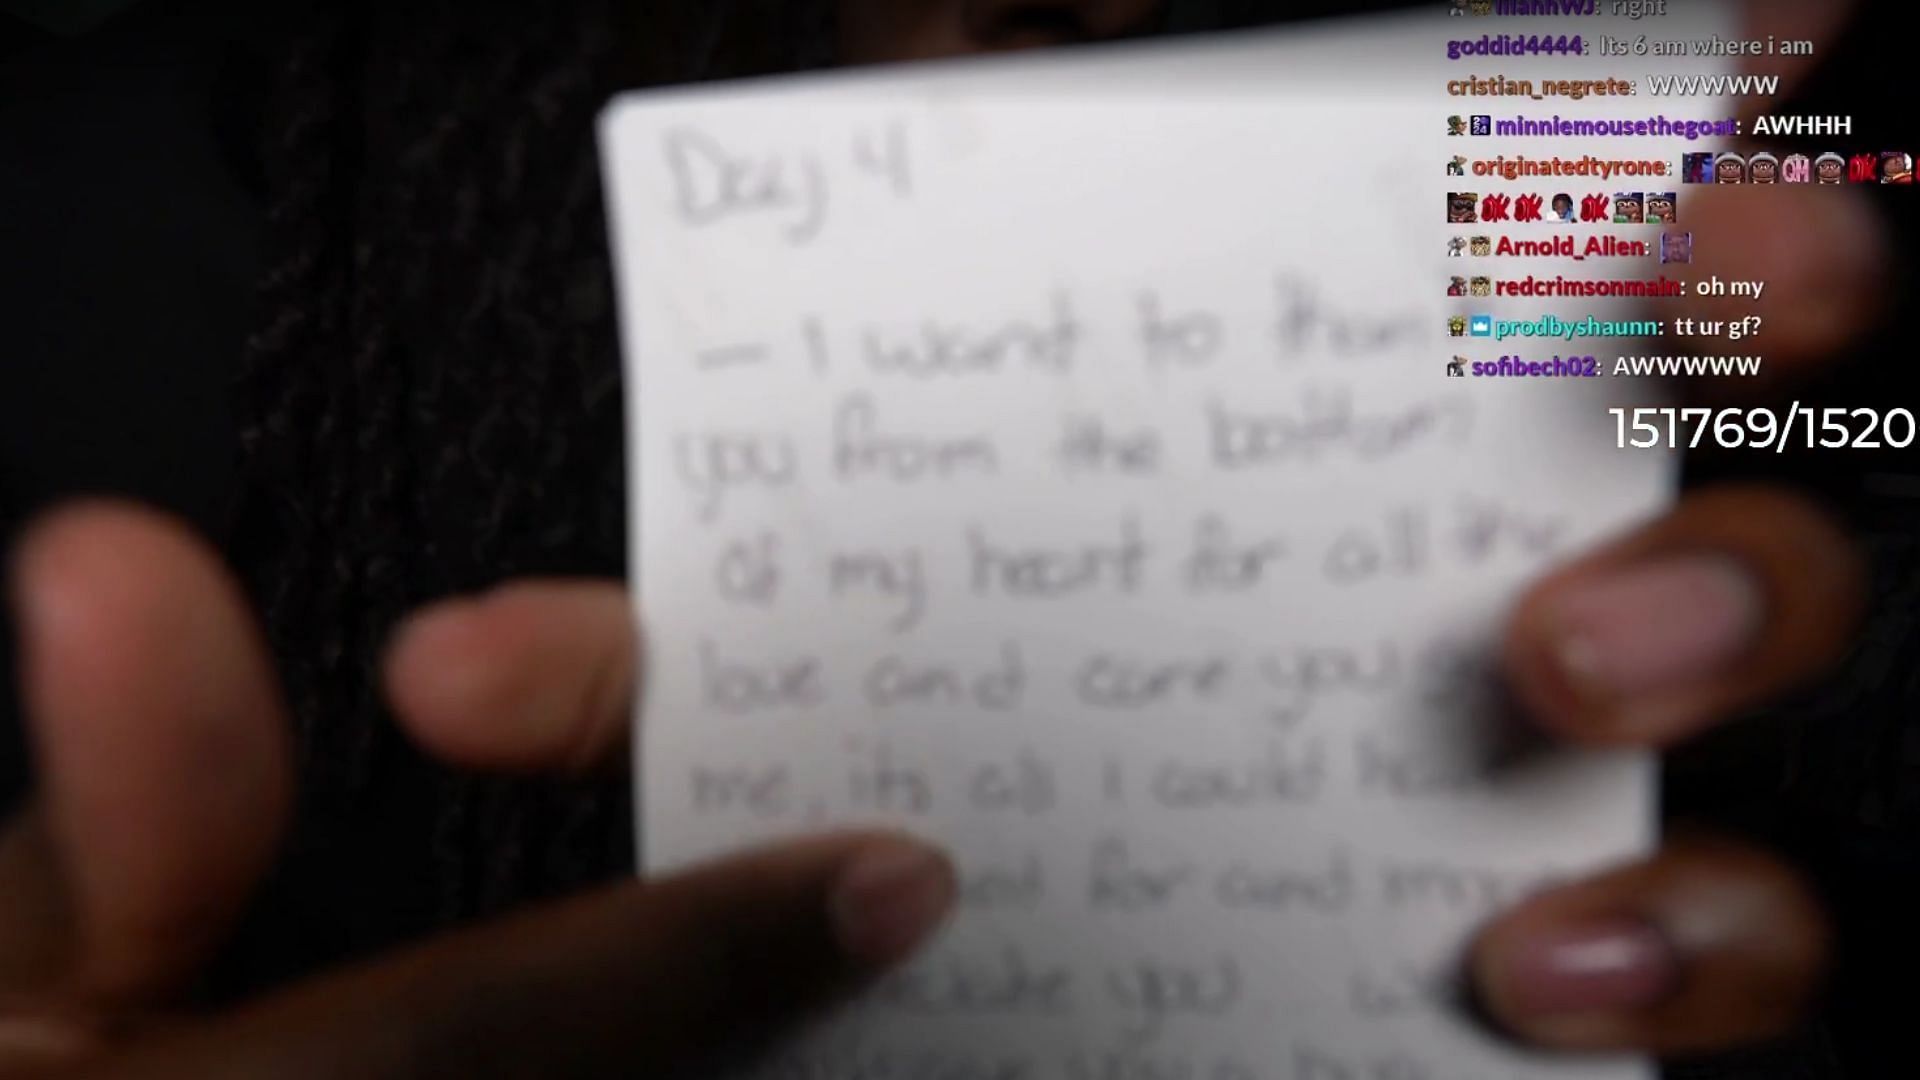 Day 4
— I want to
you from the bottom
of my heart for all the
love and care you
me, its all I could
for and
you
lilahhWJ: right
goddid4444: Its 6 am where i am
cristian_negrete: WWWWW
minniemousethegoat: AWHHH
originatedtyrone:
Arnold_Alien:
redcrimsonmain: oh my
prodbyshaunn: tt ur gf?
sofibech02: AWWWWW
151769/1520